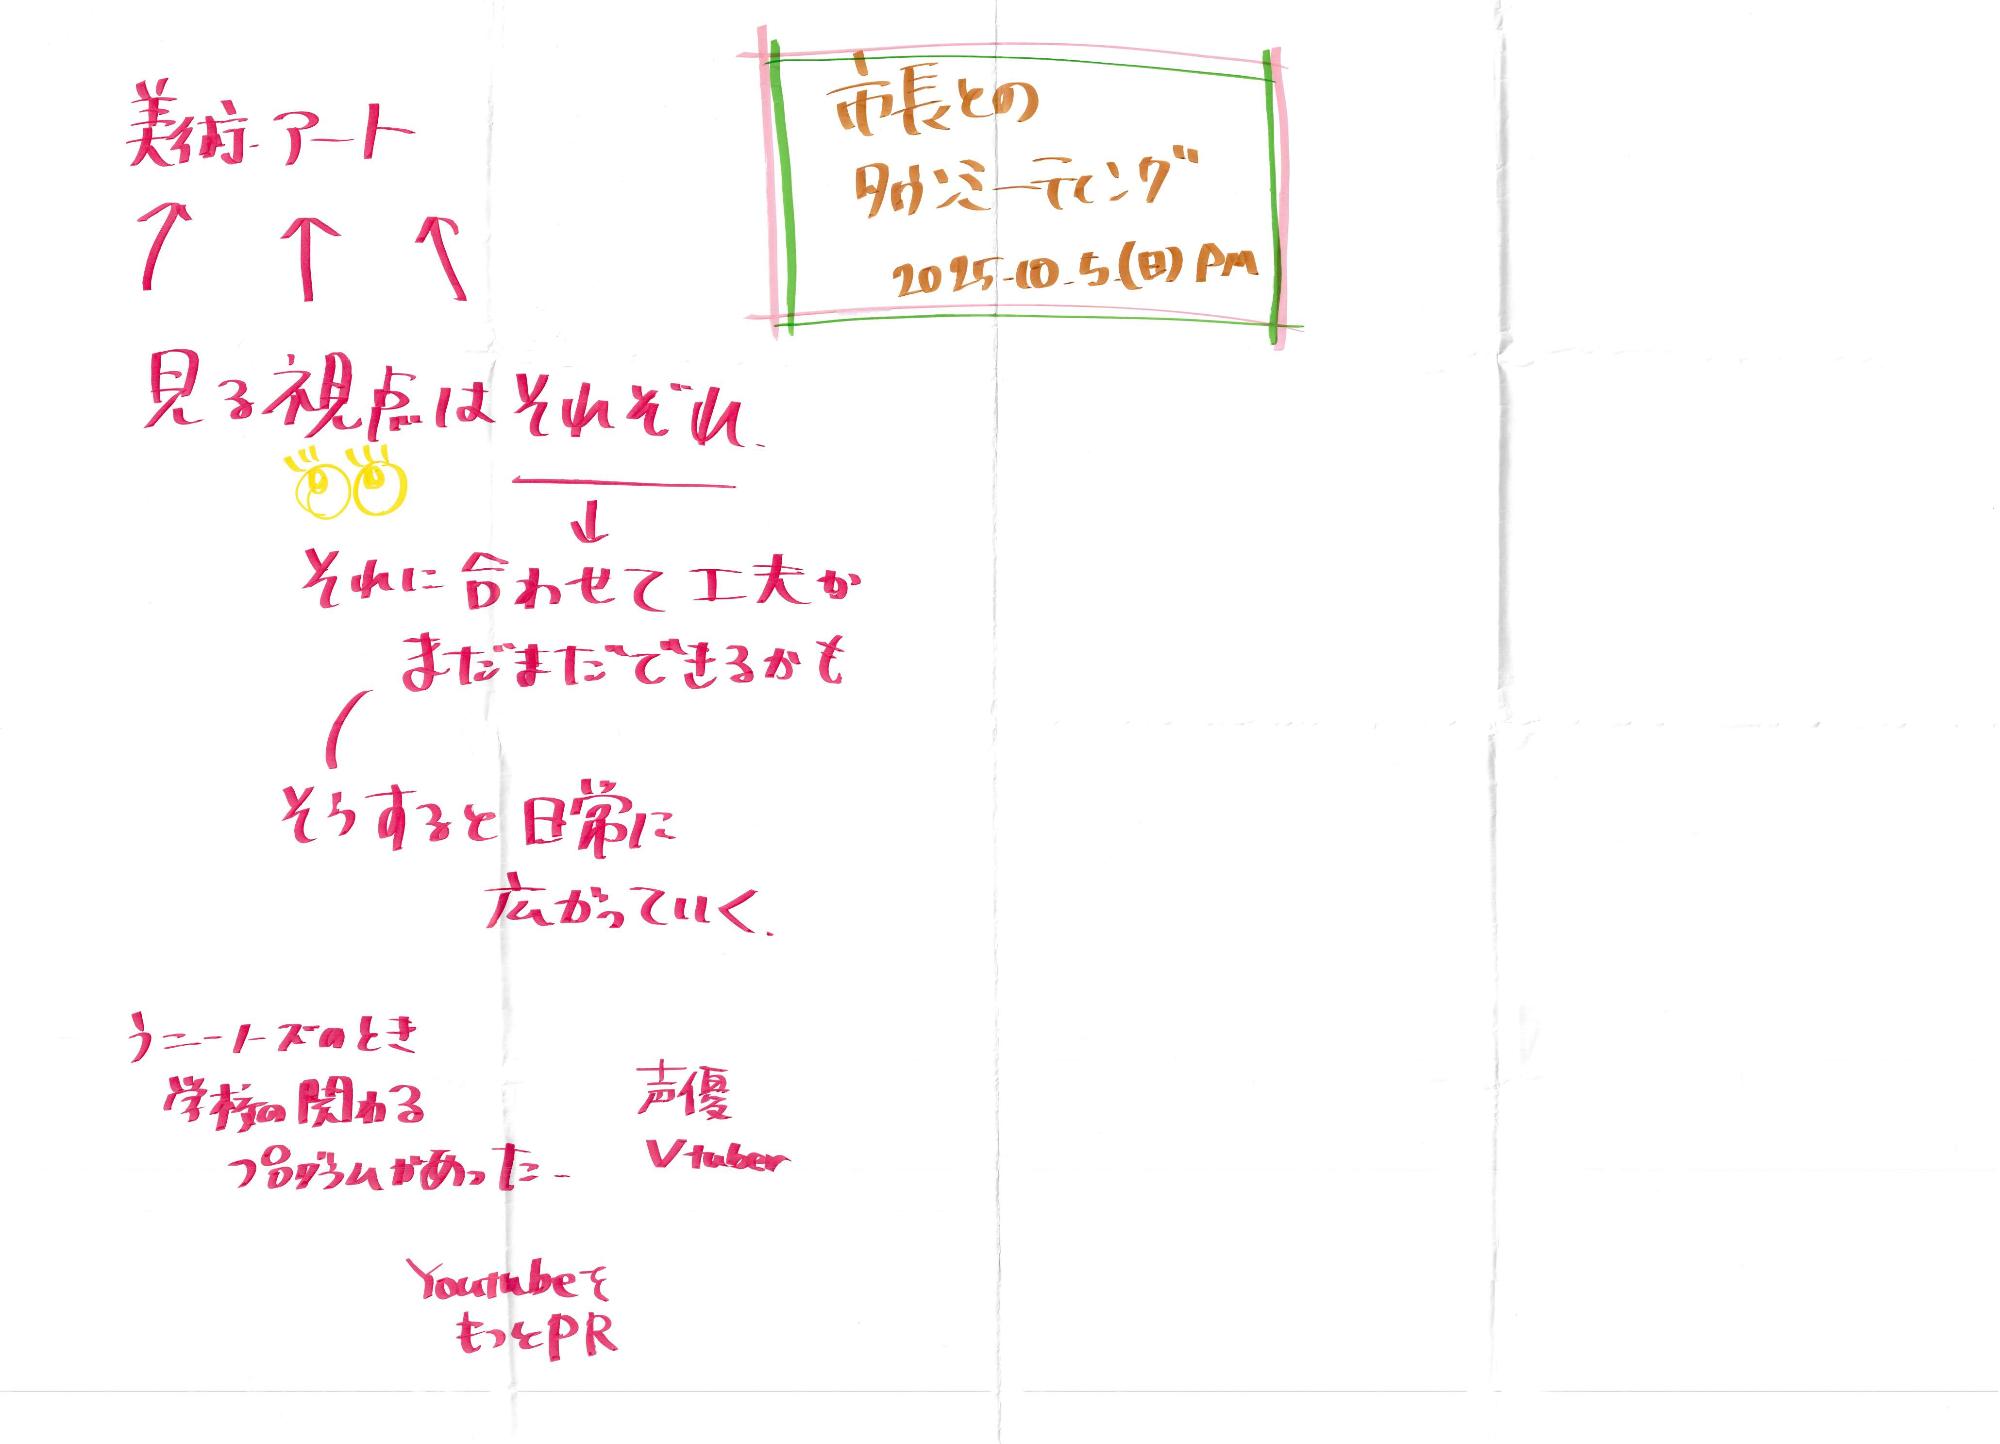 市長との
タウンミーティング
2025.10.5(日)PM
美術.アート
見る視点はそれぞれ.
それに合わせて工夫が
まだまだできるかも
そうすると日常に
広がっていく.
ラニートーズのとき
学校の関わる
プログラムがあった.
声優
Vtuber
Youtubeを
もっとPR